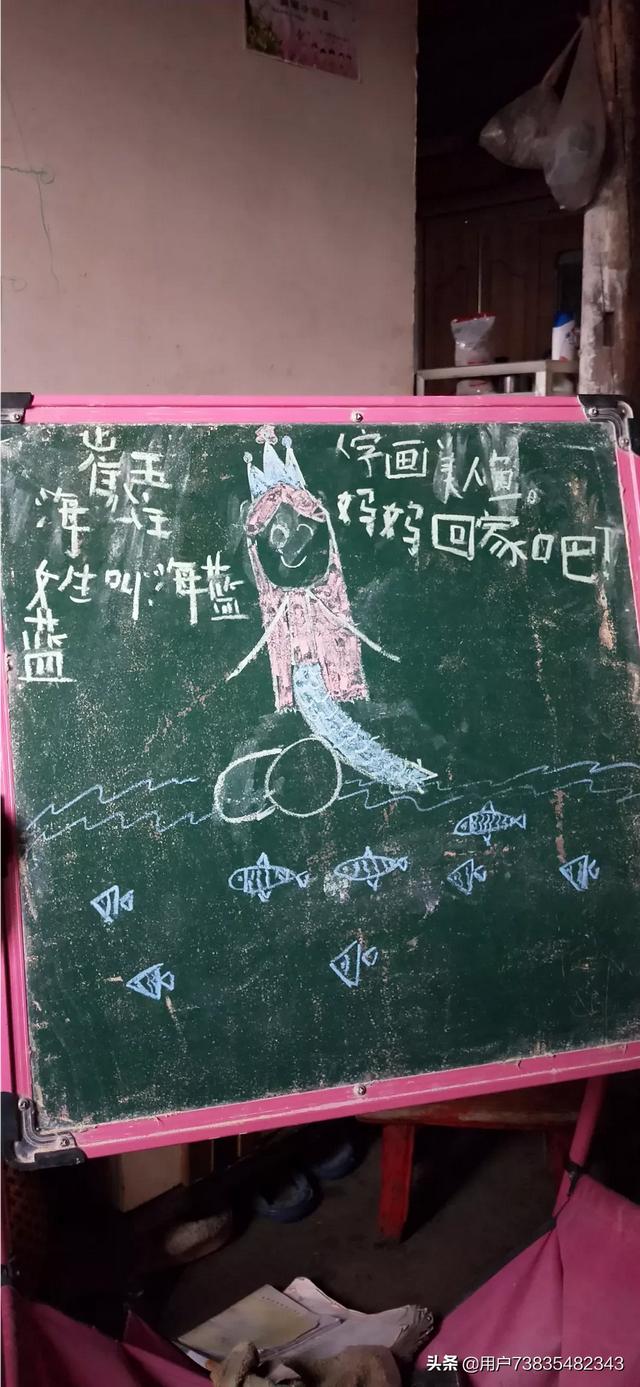 海
女生叫.海蓝
蓝
字画美人鱼。
妈妈回家吧
头条 @用户73835482343